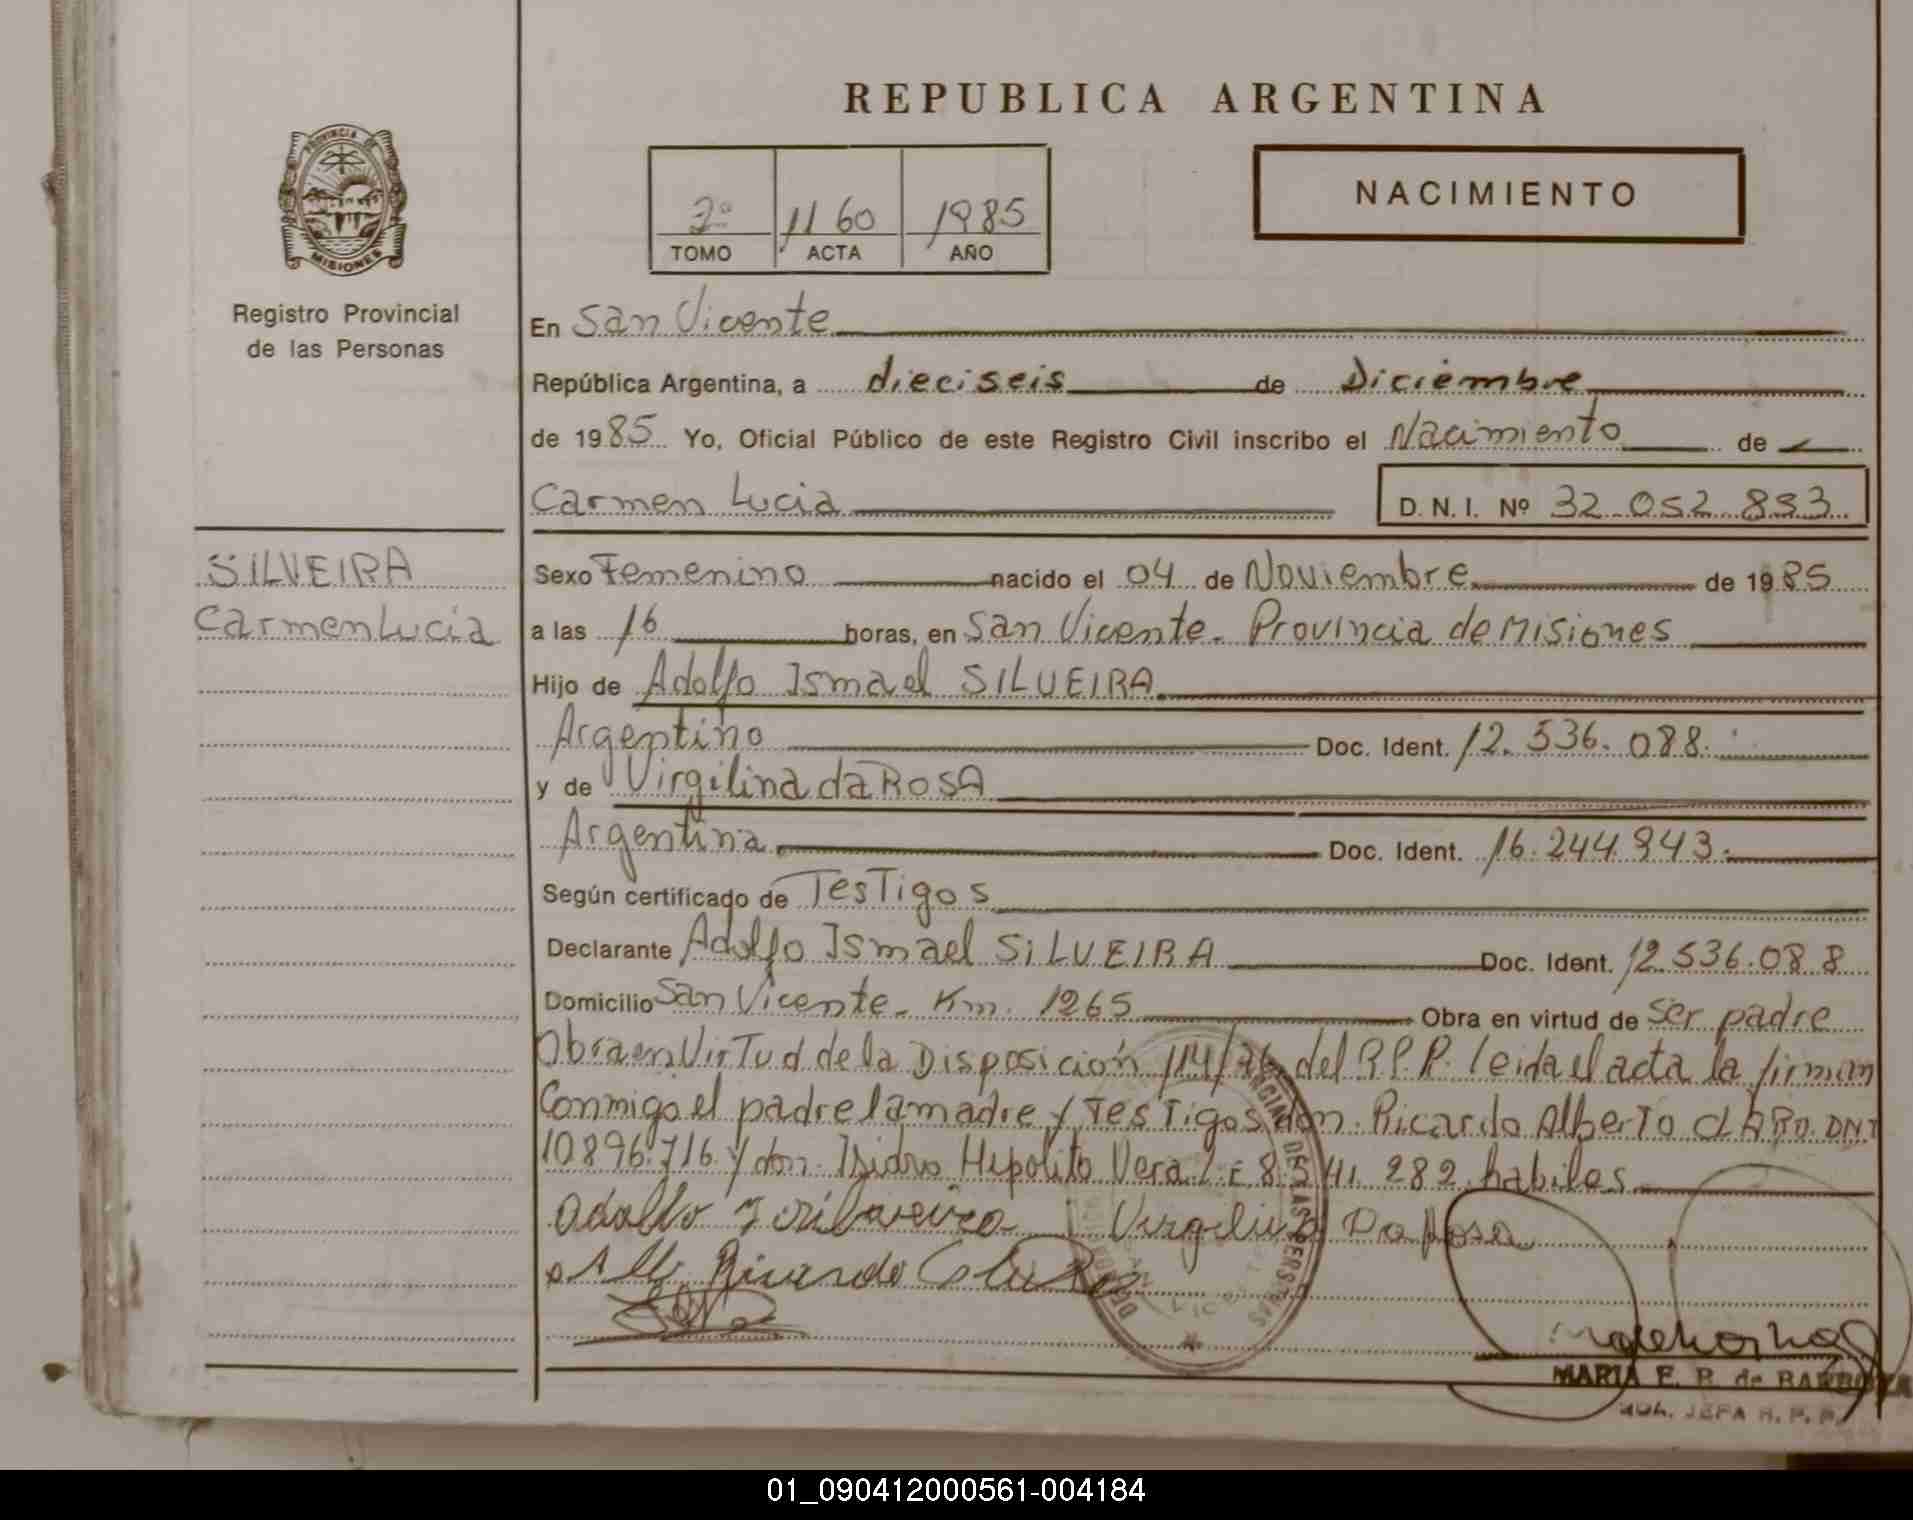 REPUBLICA ARGENTINA
PROVINCIA DE
MISIONES
Registro Provincial
de las Personas
2º 1160 1985
TOMO ACTA AÑO
NACIMIENTO
En San Vicente
República Argentina, a dieciseis de Diciembre
de 1985 Yo, Oficial Público de este Registro Civil inscribo el Nacimiento de
Carmen Lucia D. N. I. Nº 32.052.893
SILVEIRA
Carmen Lucia
Sexo Femenino nacido el 04 de Noviembre de 1985
a las 16 horas, en San Vicente. Provincia de Misiones
Hijo de Adolfo Ismael SILVEIRA
Argentino Doc. Ident. 12.536.088.
y de Virgilina da ROSA
Argentina Doc. Ident. 16.244.943.
Según certificado de Testigos
Declarante Adolfo Ismael SILVEIRA Doc. Ident. 12.536.088
Domicilio San Vicente. Km. 1265 Obra en virtud de ser padre
Obra en Virtud de la Disposición 114/ del R.P.P. leida el acta la firman
Conmigo el padre la madre y Testigos don. Ricardo Alberto CLARO. DNI
10896.716 y don. Isidro Hipolito Vera L.E 8.541.282 habiles
Adolfo Silveira Virgilina Da Rosa
Ricardo Claro
MARIA E. R. de
JEFA R. P. P.
01_090412000561-004184